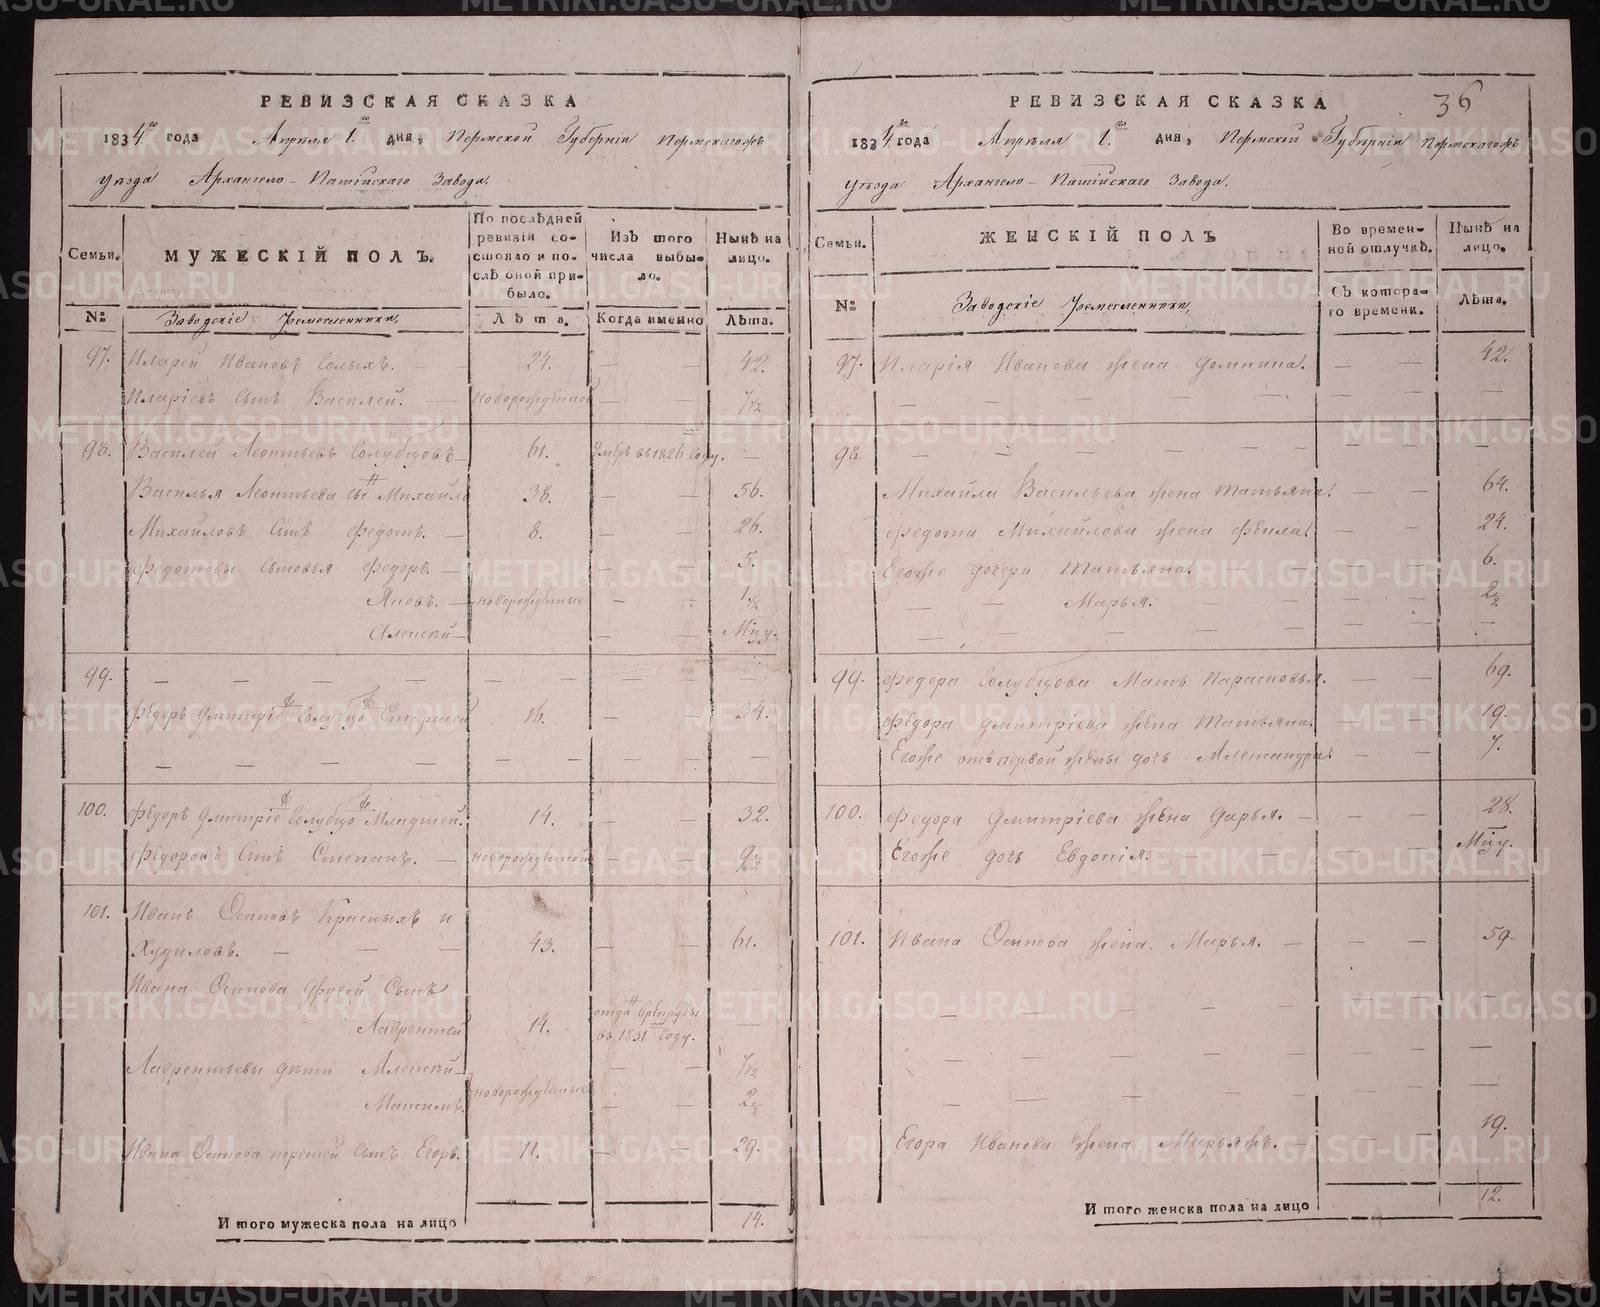 РЕВИЗСКАЯ СКАЗКА
1834го года Апреля 1.го дня, Пермской Губерніи Пермскагожъ
уѣзда Архангело-Пашійскаго Завода.
Семьи.
МУЖЕСКІЙ ПОЛЪ.
По послѣдней ревизіи состояло и послѣ оной прибыло.
Изъ того числа выбыло.
Нынѣ на лицо.
№
Заводскіе Ремесленники,
Лѣта.
Когда именно
Лѣта.
97. Иларей Ивановъ — 24. — — 42.
Иларіевъ сынъ Василей. — новорожденной — — 7 1/2
98. Василей Леонтьевъ Голубцовъ — 61. умеръ въ 1826 году. —
Василья Леонтьева сынъ Михайло 38. — — 56.
Михайловъ сынъ Федотъ. — 8. — — 26.
Федотовы сыновья Федоръ. — — — 5.
Яковъ. — новорожденные — — 1 1/2
Алексей — — — Мцу.
99. — — — — — — — —
Федоръ Дмитріевъ Голубцовъ Старшей 16. — — 34.
— — — — — — — —
100. Федоръ Дмитріевъ Голубцовъ Младшей. 14. — — 32.
Федоровъ сынъ Степанъ. — новорожденной — — 9 1/2
101. Иванъ Осиповъ Красныхъ и
Худиловъ. — — — 43. — — 61.
Ивана Осипова другой сынъ
Лаврентей 14. отданъ въ рекруты въ 1831 году. —
Лаврентьевы дети Алексей — — — 7 1/2
Максимъ. новорожденные — — 2
Ивана Осипова третей сынъ Егоръ. 11. — — 29.
И того мужеска пола на лицо 14.
36
РЕВИЗСКАЯ СКАЗКА
1834го года Апреля 1.го дня, Пермской Губерніи Пермскагожъ
уѣзда Архангело-Пашійскаго Завода.
Семьи.
ЖЕНСКІЙ ПОЛЪ
Во временной отлучкѣ.
Нынѣ на лицо.
№
Заводскіе Ремесленники,
Съ котораго времени.
Лѣта.
97. Иларія Иванова жена Домнина. — — 42.
— — — — — — — —
98. — — — — — — —
Михайла Васильева жена Татьяна. — — 64.
Федота Михайлова жена Фекла. — — 24.
Егоже дочери Татьяна. — — — 6.
— — Марья. — — — — 2
— — — — — — — —
99. Федора Голубцова Мать Парасковья. — — 69.
Федора Дмитріева жена Татьяна. — — 19.
Егоже отъ первой жены дочь Александра. — — 7.
100. Федора Дмитріева жена Дарья. — — — 28.
Егоже дочь Евдокія. — — — — Мцу.
101. Ивана Осипова жена. Марья. — — — 59.
— — — — — — — —
— — — — — — — —
— — — — — — — —
Егора Иванова жена Марьяжъ. — — — 19.
И того женска пола на лицо 12.
METRIKI.GASO-URAL.RU